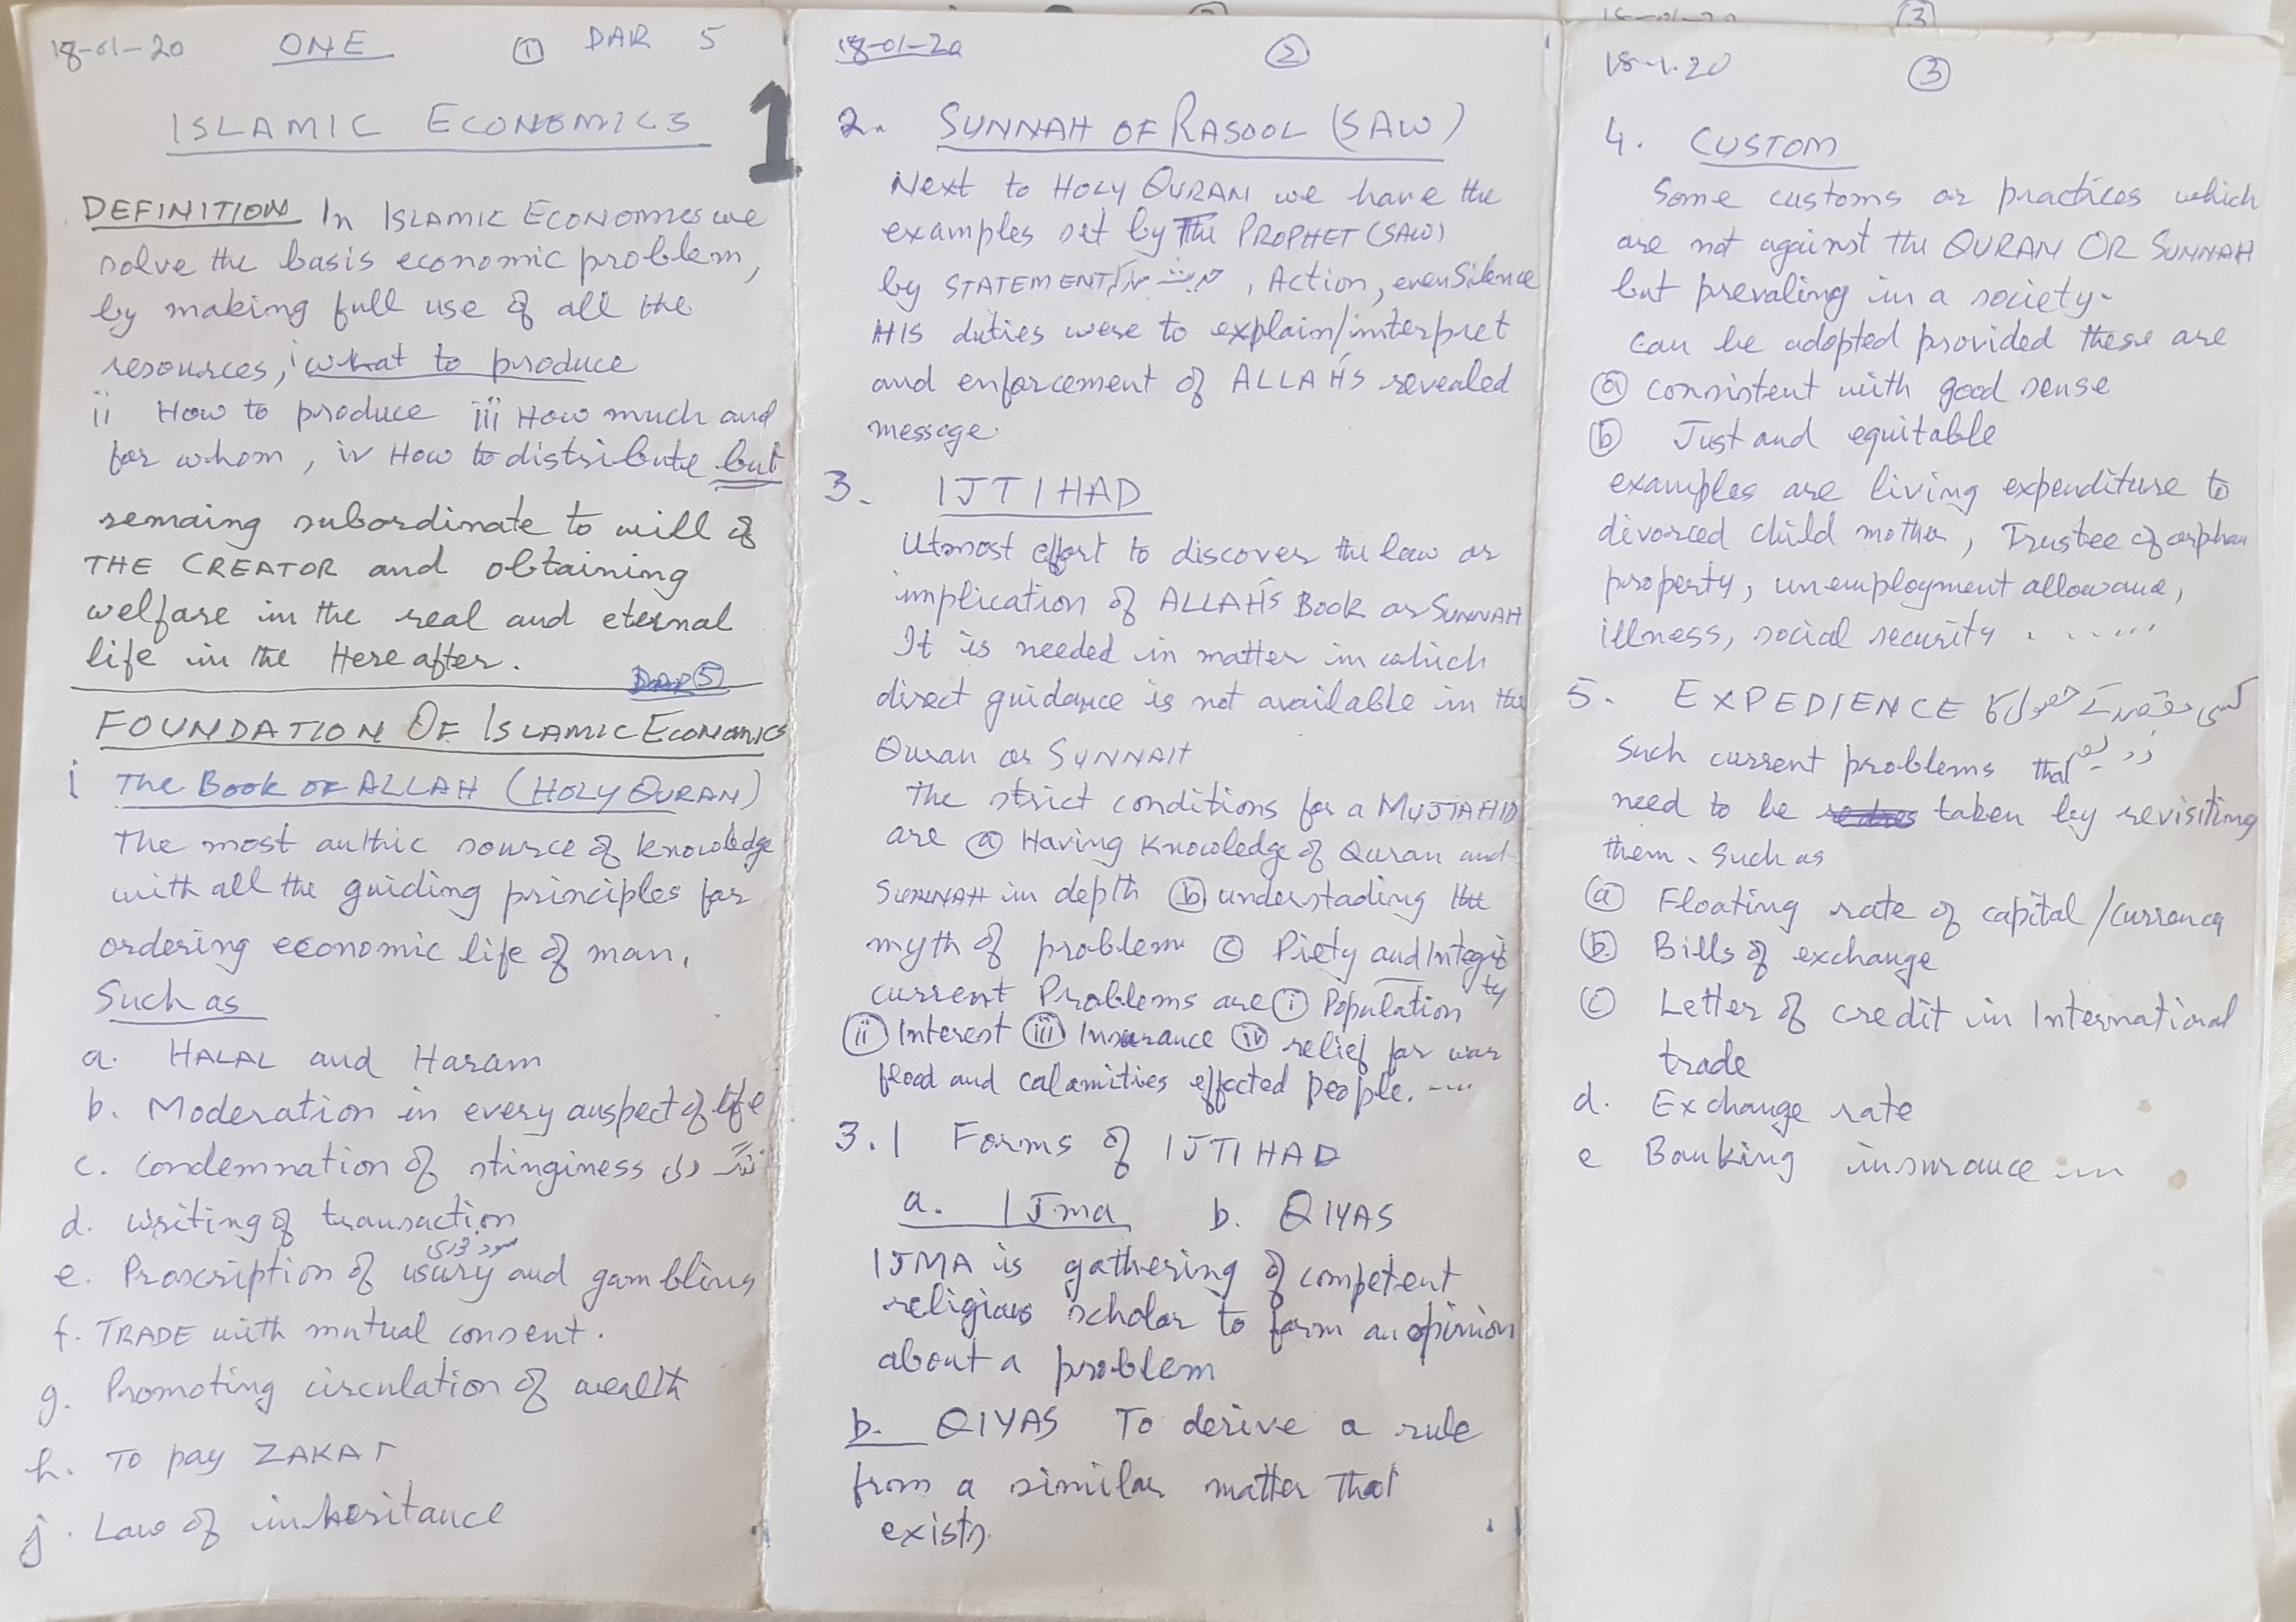 18-01-20 ONE ① DAR 5
1
ISLAMIC ECONOMICS
DEFINITION In ISLAMIC ECONOMICS we
solve the basis economic problem,
by making full use of all the
resources, i what to produce
ii How to produce iii How much and
for whom, iv How to distribute but
remaing subordinate to will of
THE CREATOR and obtaining
welfare in the real and eternal
life in the Here after.
DAR ⑤
FOUNDATION OF ISLAMIC ECONOMICS
i The BOOK OF ALLAH (HOLY QURAN)
The most authic source of knowledge
with all the guiding principles for
ordering economic life of man,
Such as
a. HALAL and Haram
b. Moderation in every auspect of life
c. Condemnation of stinginess
d. writing of transaction
سود خوری
e. Proscription of usury and gambling
f. TRADE with mutual consent.
g. Promoting circulation of wealth
h. To pay ZAKAT
j. Law of inheritance
18-01-20 ②
2. SUNNAH OF RASOOL (SAW)
Next to HOLY QURAN we have the
examples set by The PROPHET (SAW)
by STATEMENT, Action, even Silence
HIS duties were to explain/interpret
and enforcement of ALLAH'S revealed
message
3. IJTIHAD
Utmost effort to discover the law or
implication of ALLAH'S BOOK or SUNNAH
It is needed in matter in which
direct guidance is not available in the
Quran or SUNNAH
The strict conditions for a MUJTAHID
are ⓐ Having Knowledge of Quran and
SUNNAH in depth ⓑ understading the
myth of problem ⓒ Piety and Integri
ty
current Problems are ⓘ Population
ⅱ Interest ⅲ Insurance ⅳ relief for war
flood and calamities effected people. ....
3.1 Forms of IJTIHAD
a. IJma b. QIYAS
IJMA is gathering of competent
religious scholar to form an opinion
about a problem
b. QIYAS To derive a rule
from a similar matter That
exists.
18-1-20 ③
4. CUSTOM
Some customs or practices which
are not against the QURAN OR SUNNAH
but prevaling in a society.
Can be adopted provided these are
ⓐ consistent with good sense
ⓑ Just and equitable
examples are living expenditure to
divorced child mother, Trustee of orphan
property, unemployment allowance,
illness, social security . . . . . .
5. EXPEDIENCE کسی مقصد کے حصول کا
Such current problems that
need to be taken by revisiting
them. Such as
ⓐ Floating rate of capital/currency
ⓑ Bills of exchange
ⓒ Letter of credit in International
trade
d. Exchange rate
e Banking insurance ....